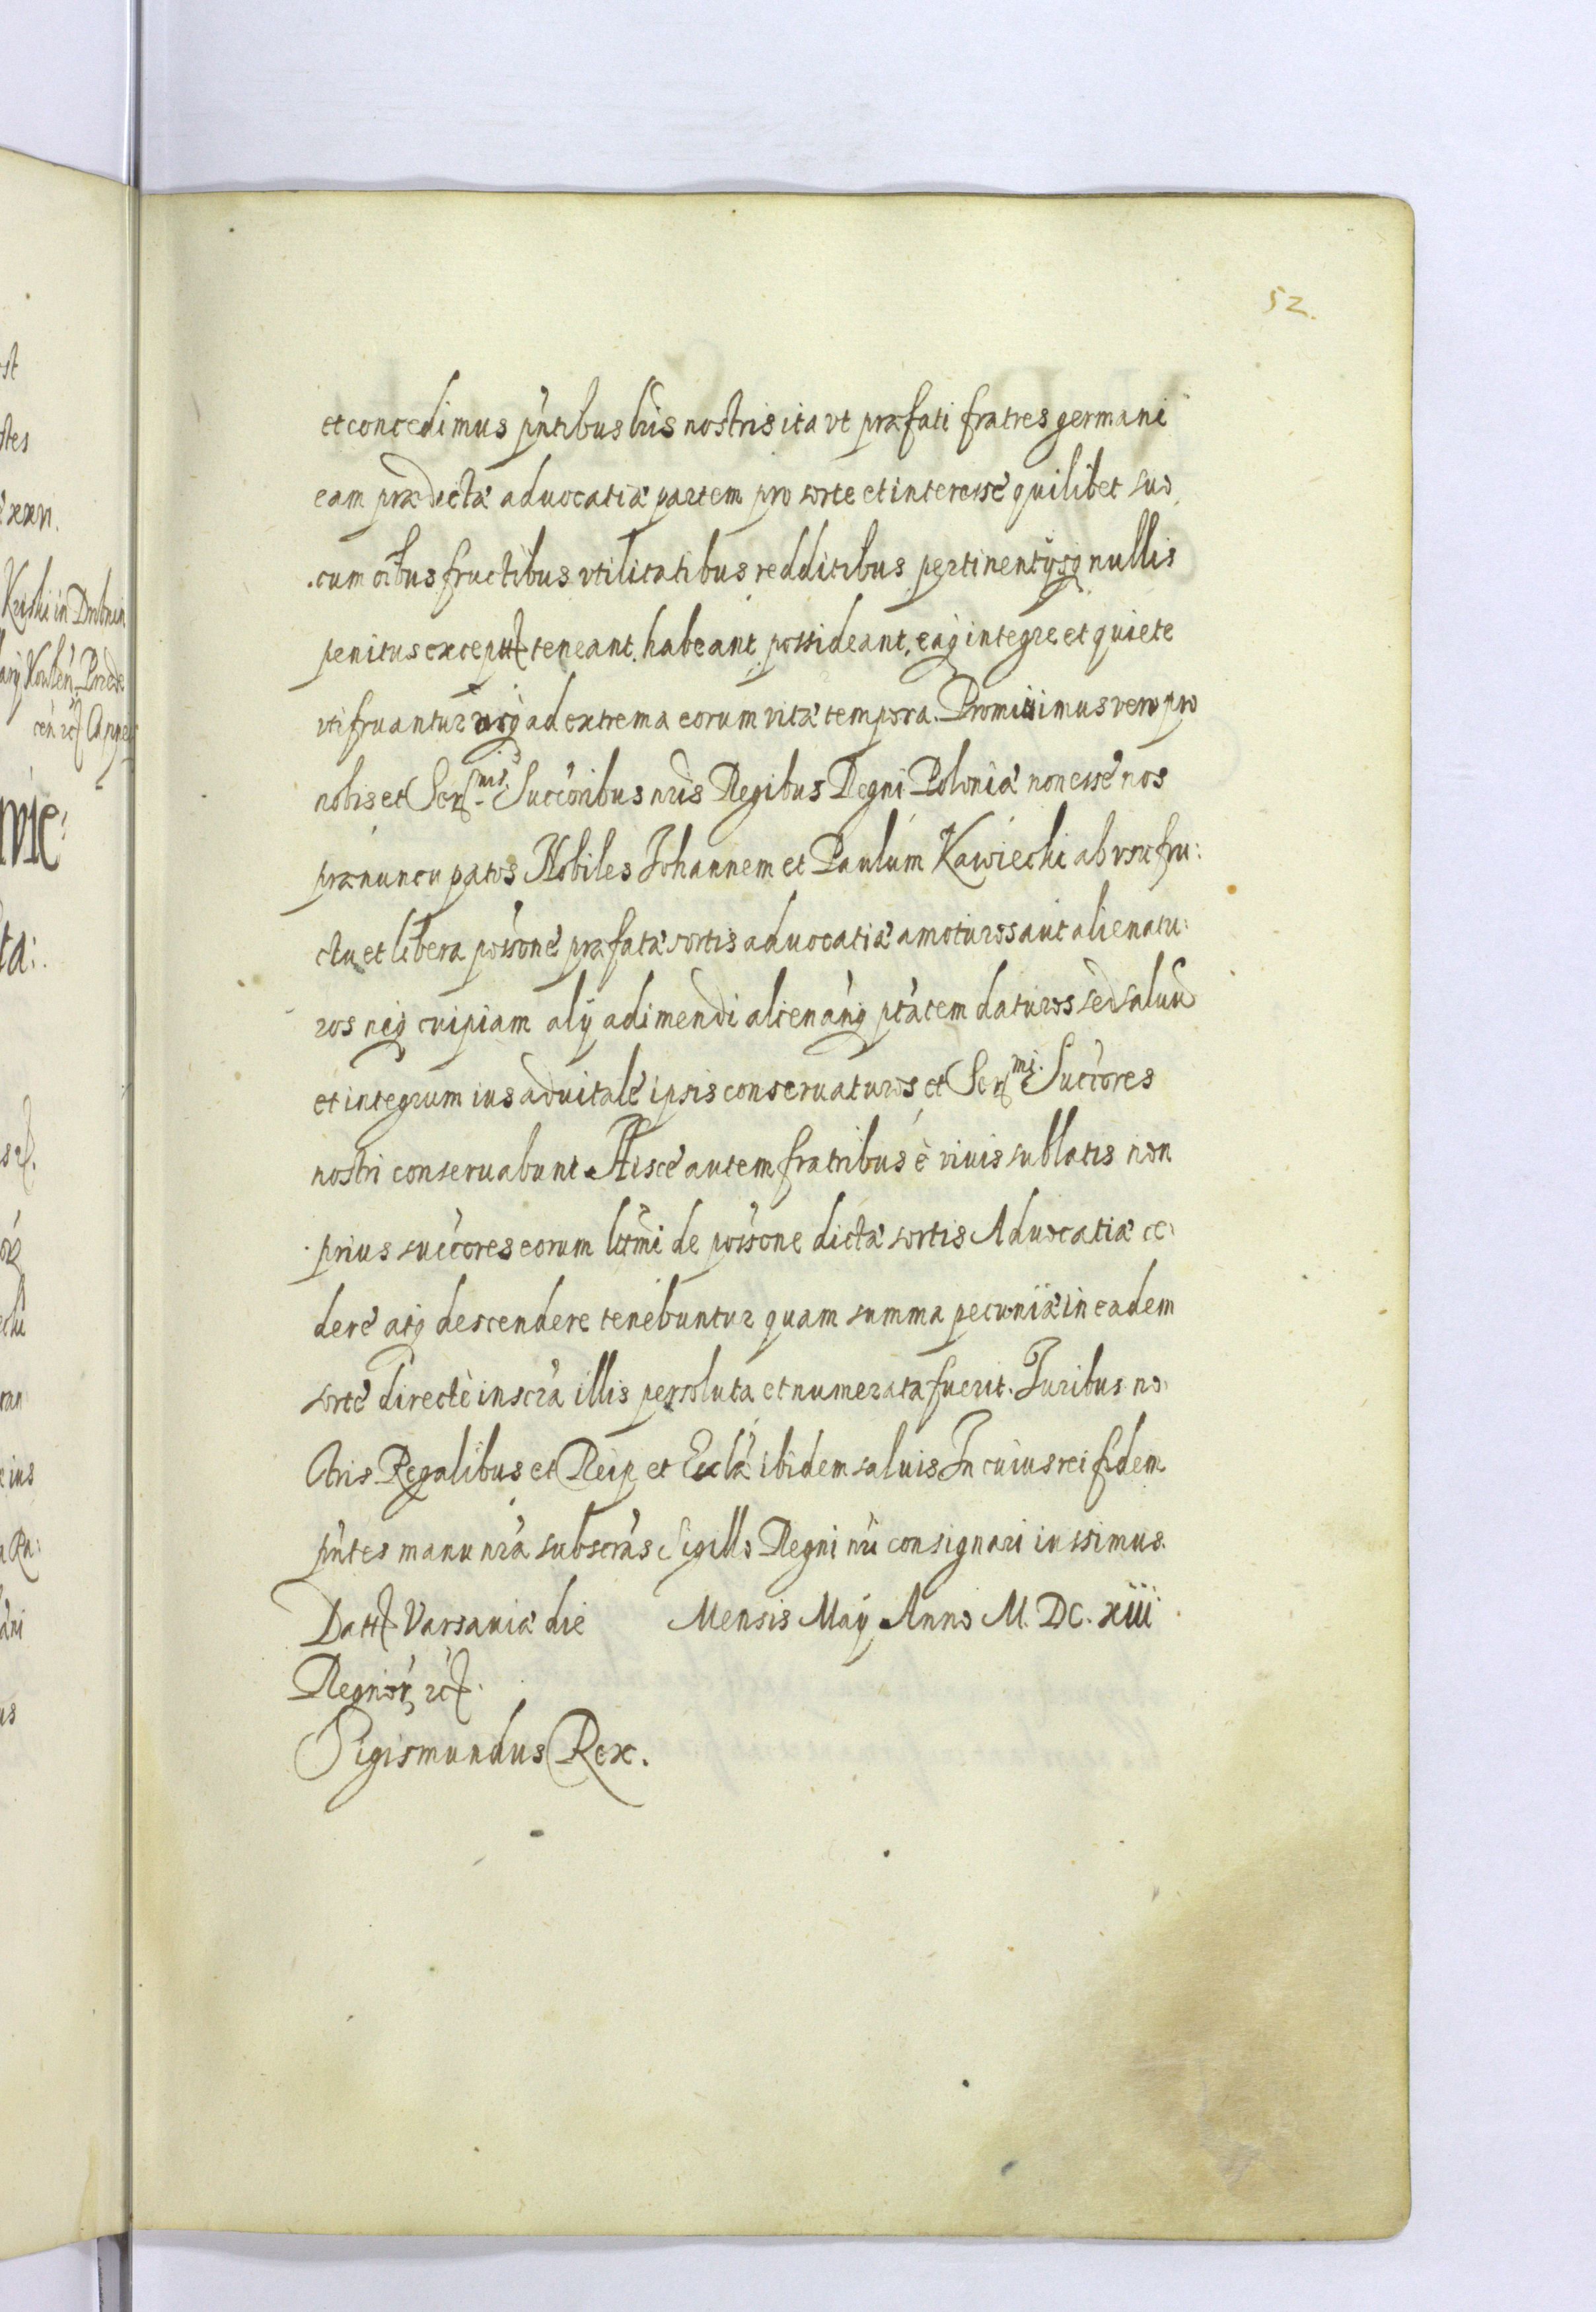 52.
et concedimus pñtibus lris nostris ita vt præfati fratres germani
eam prædictæ aduocatiæ partem pro sorte et interesse quilibet suo
cum oibus fructibus vtilitatibus redditibus pertinentijsq nullis
penitus except teneant habeant possideant, eaq integre et quiete
vtifruantur usq ad extrema eorum vitæ tempora. Promissimus vero pro
nobis et Sermis Succoribus nris Regibus Regni Poloniæ non esse nos
prænuncupatos Nobiles Johannem et Paulum Kawiecki ab vsufru:
ctu et libera possone præfatæ sortis aduocatiæ amoturos aut alienatu:
ros neq cuipiam alij adimendi alienanq ptatem daturos sed saluu
et integrum ius aduitale ipsis conseruaturos, et Sermi Succores
nostri conseruabunt Hisce autem fratribus è viuis sublatis non
prius succores eorum lttmi de possone dictæ sortis Aduocatiæ ce
dere atq descendere tenebuntur quam summa pecuniæ in eadem
sorte directè inscra illis persoluta et numerata fuerit. Juribus no
stris Regalibus et Reip et Ecclæ ibidem saluis In cuius rei fidem
pñtes manu nra subscras Sigillo Regni nri consignari iussimus.
Datt Varsauiæ die Mensis Maij Anno M. DC. xiii
Regnor, etc.
Sigismundus Rex.